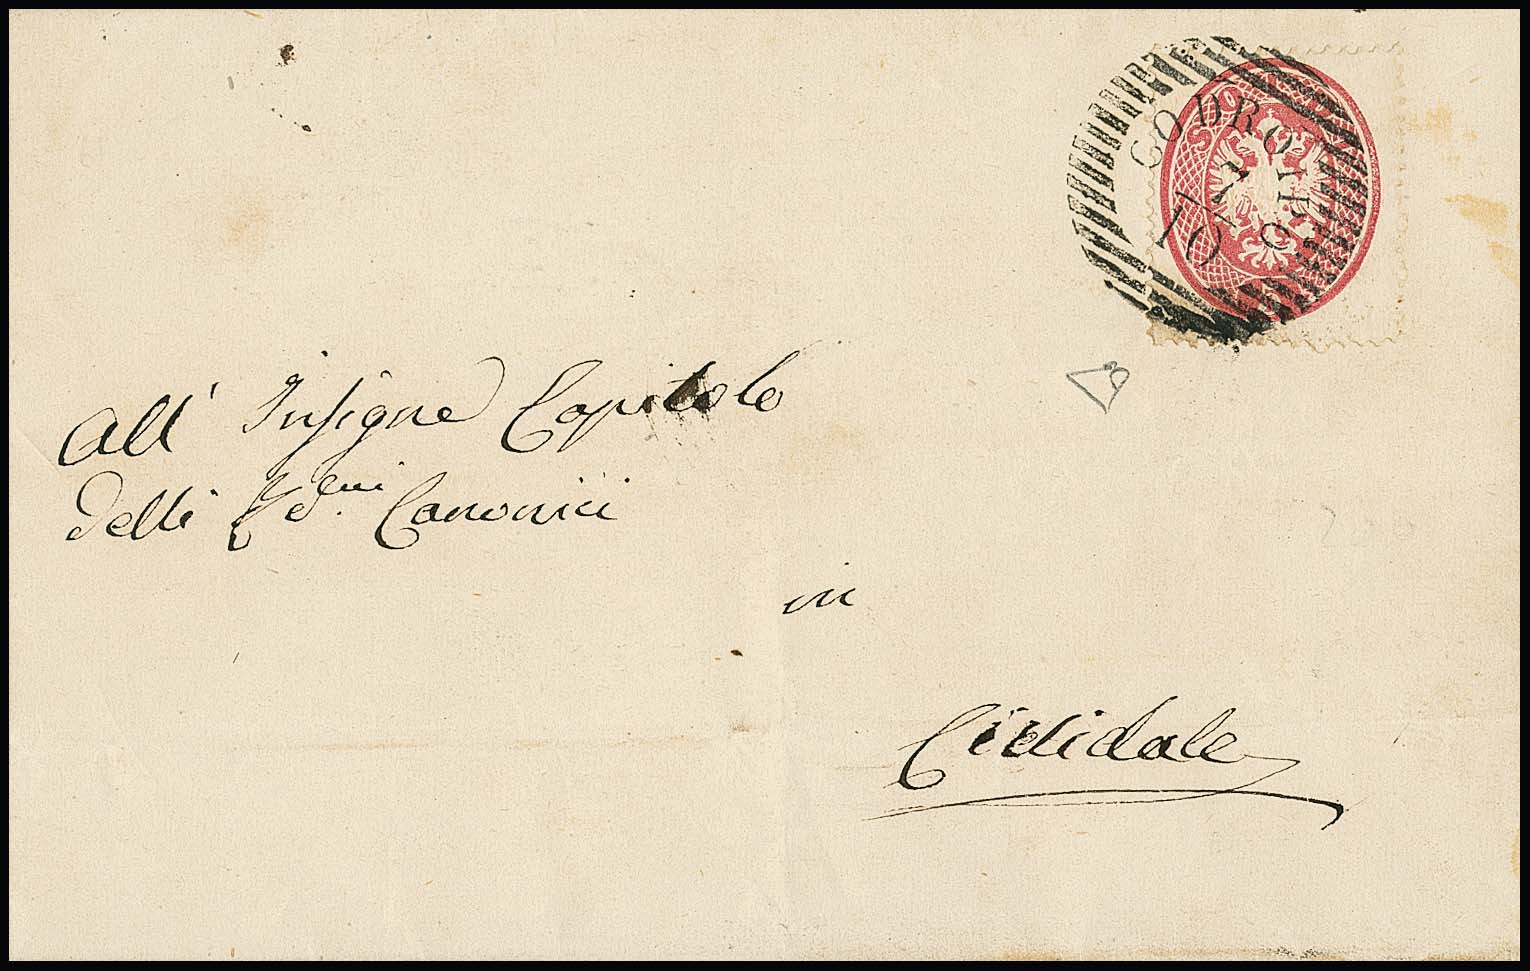 CODROIPO
7
10
all' Insigne Capitolo
delli R.dmi Canonici
in
Cividale